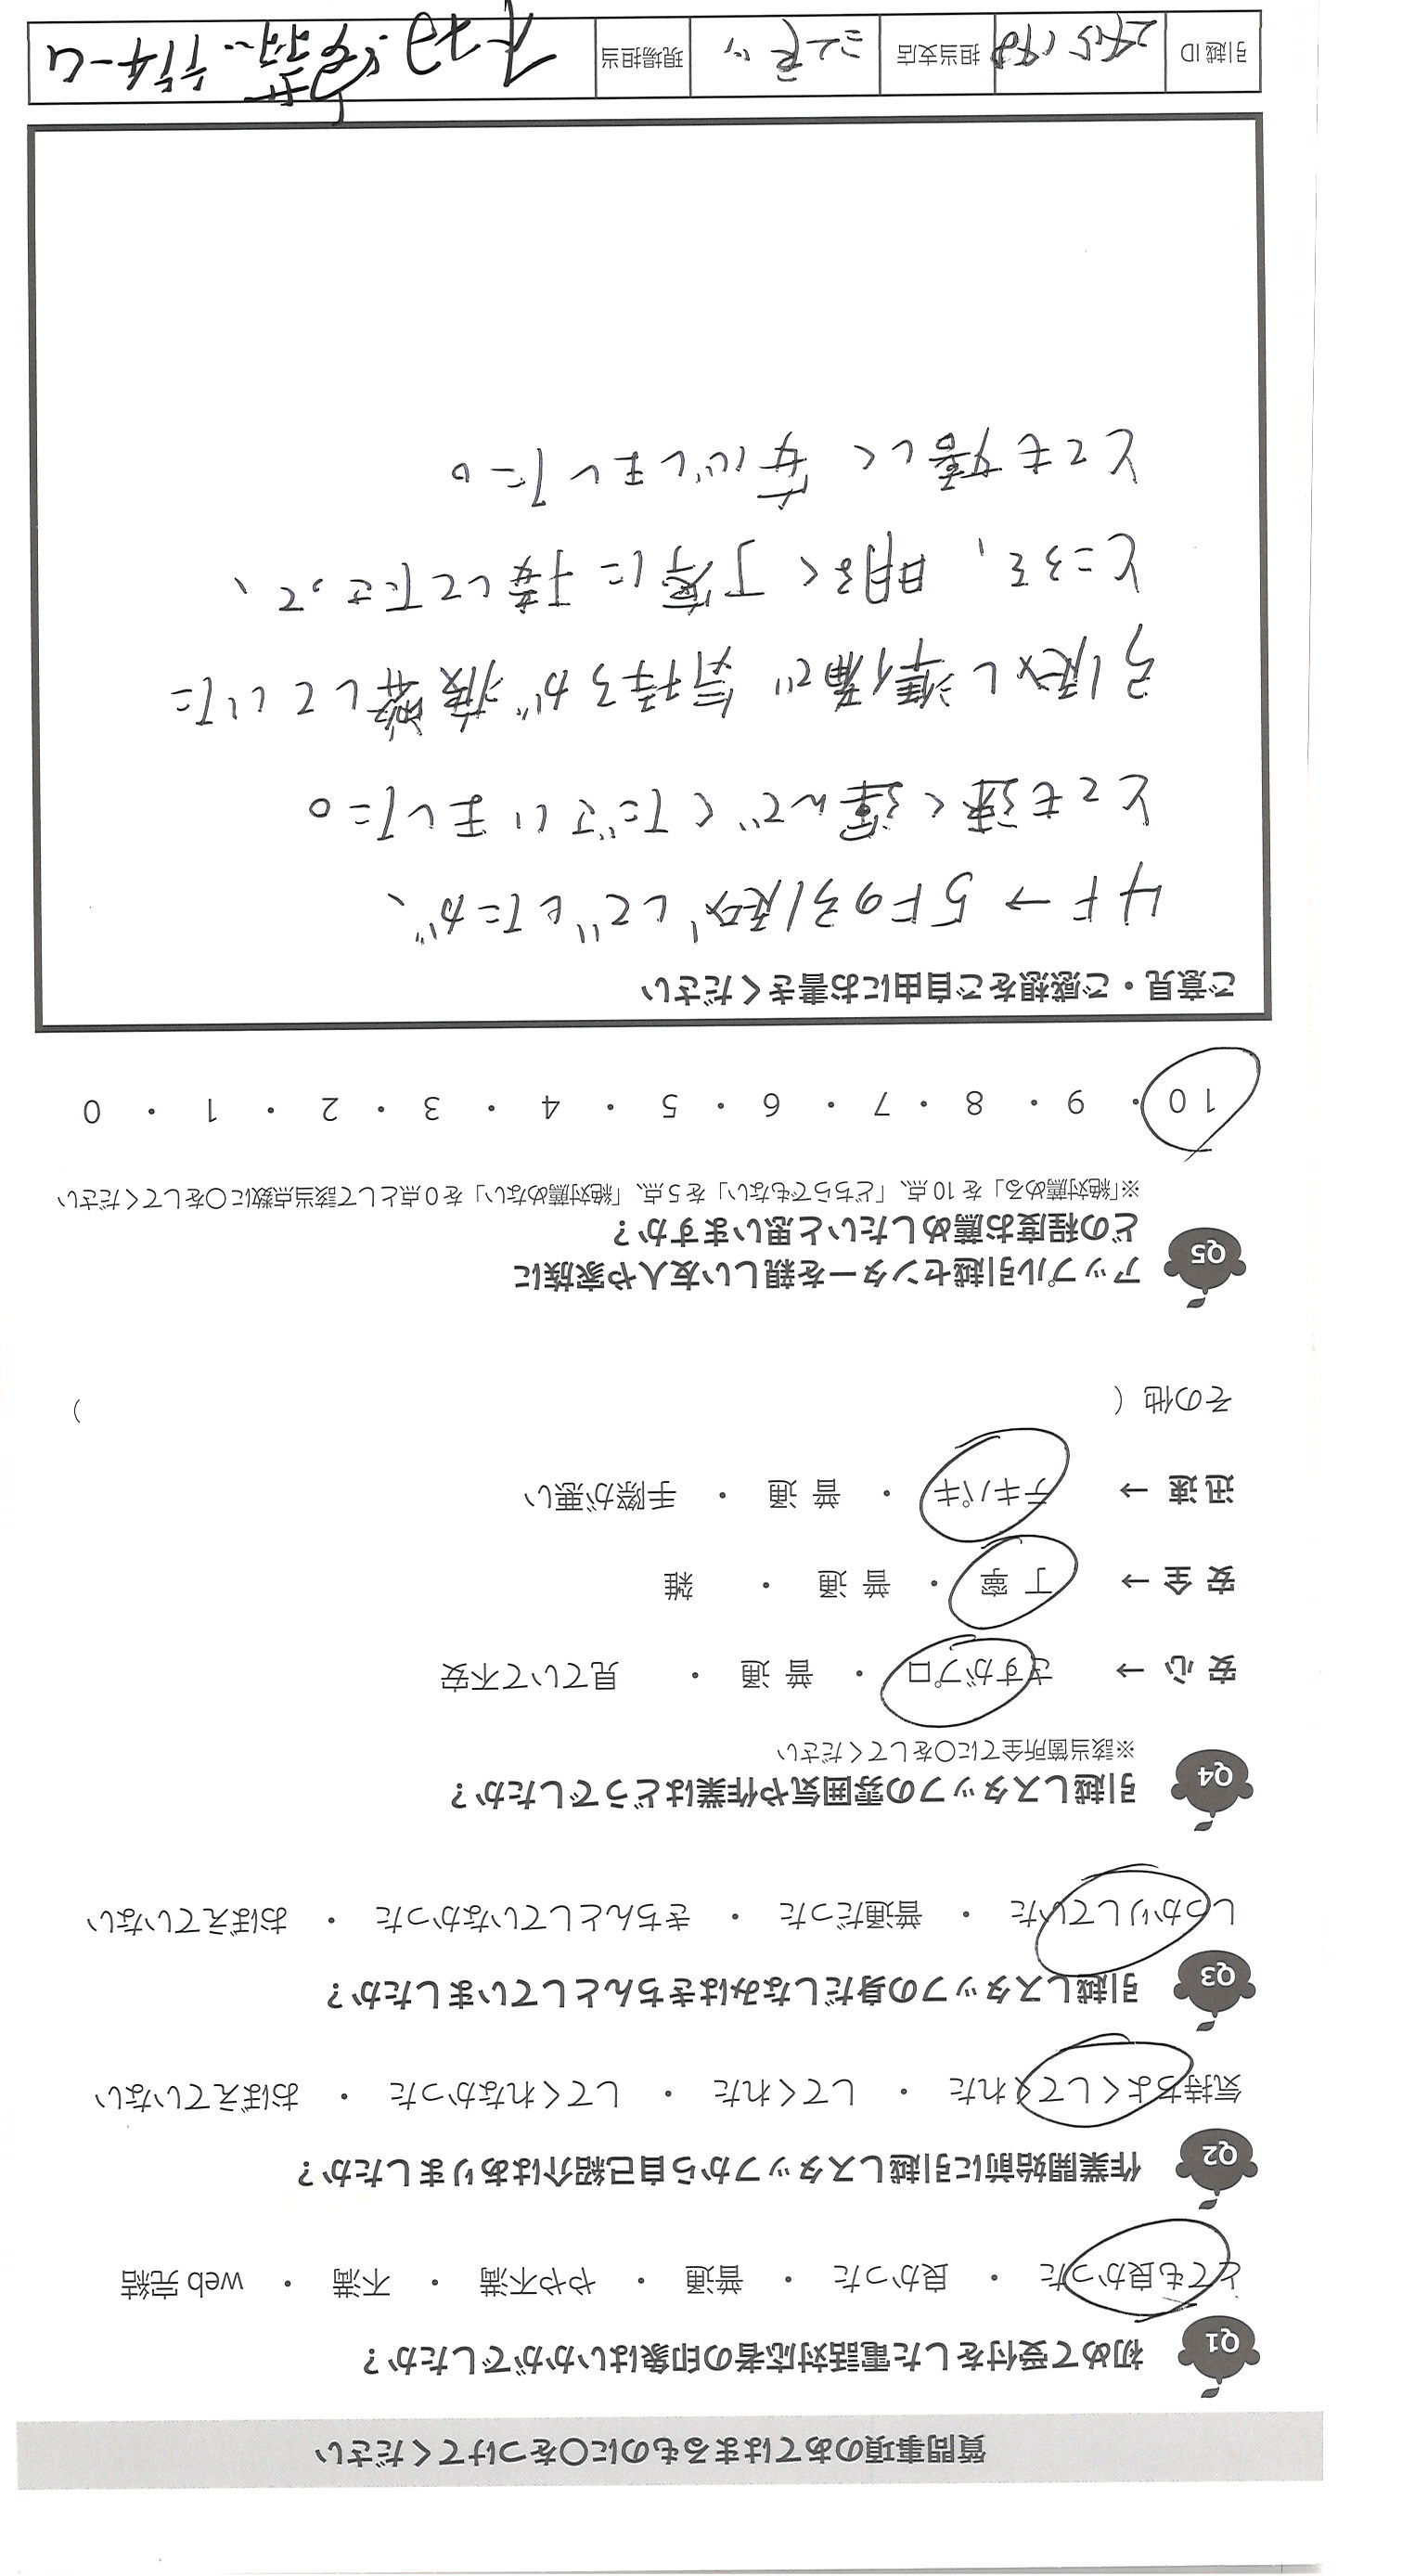 質問事項のあてはまるものに〇をつけてください
Q1 初めて受付をした電話対応者の印象はいかがでしたか?
とても良かった ・ 良かった ・ 普通 ・ やや不満 ・ 不満 ・ web 完結
Q2 作業開始前に引越しスタッフから自己紹介はありましたか?
気持ちよくしてくれた ・ してくれた ・ してくれなかった ・ おぼえていない
Q3 引越しスタッフの身だしなみはきちんとしていましたか?
しっかりしていた ・ 普通だった ・ きちんとしていなかった ・ おぼえていない
Q4 引越しスタッフの雰囲気や作業はどうでしたか?
※該当箇所全てに〇をしてください
安心 → さすがプロ ・ 普通 ・ 見ていて不安
安全 → 丁寧 ・ 普通 ・ 雑
迅速 → テキパキ ・ 普通 ・ 手際が悪い
その他 ( )
Q5 アップル引越センターを親しい友人や家族に
どの程度お薦めしたいと思いますか?
※「絶対薦める」を10点、「どちらでもない」を5点、「絶対薦めない」を0点として該当点数に〇をしてください
10 ・ 9 ・ 8 ・ 7 ・ 6 ・ 5 ・ 4 ・ 3 ・ 2 ・ 1 ・ 0
ご意見・ご感想をご自由にお書きください
4F → 5Fの引越しでしたが、
とても速く運んでくださいました。
引越し準備で気持ちが疲弊していた
ところを、明るく丁寧に接して下さって、
とても嬉しく安心しました。
引越ID 担当支店 現場担当